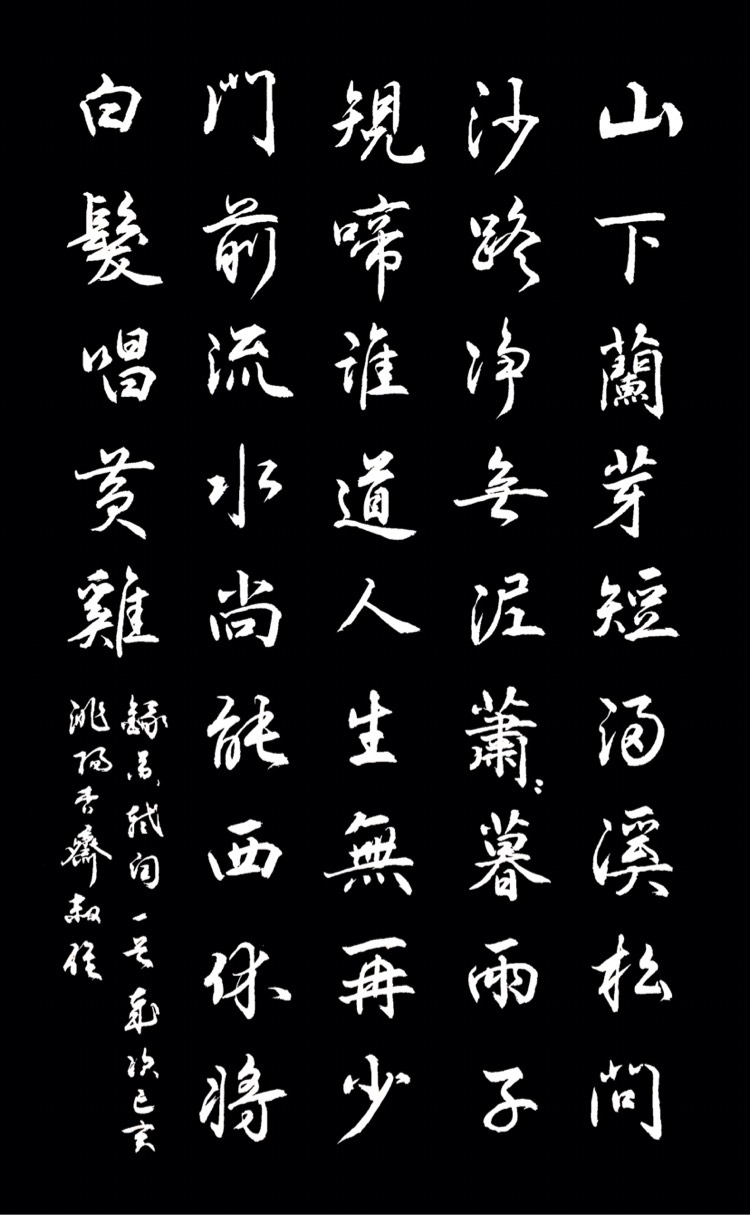 山下蘭芽短浸溪松間
沙路净無泥蕭〻暮雨子
規啼誰道人生無再少
門前流水尚能西休將
白髮唱黃雞
錄蘇軾詞一首歲次己亥
洮陽杏齋